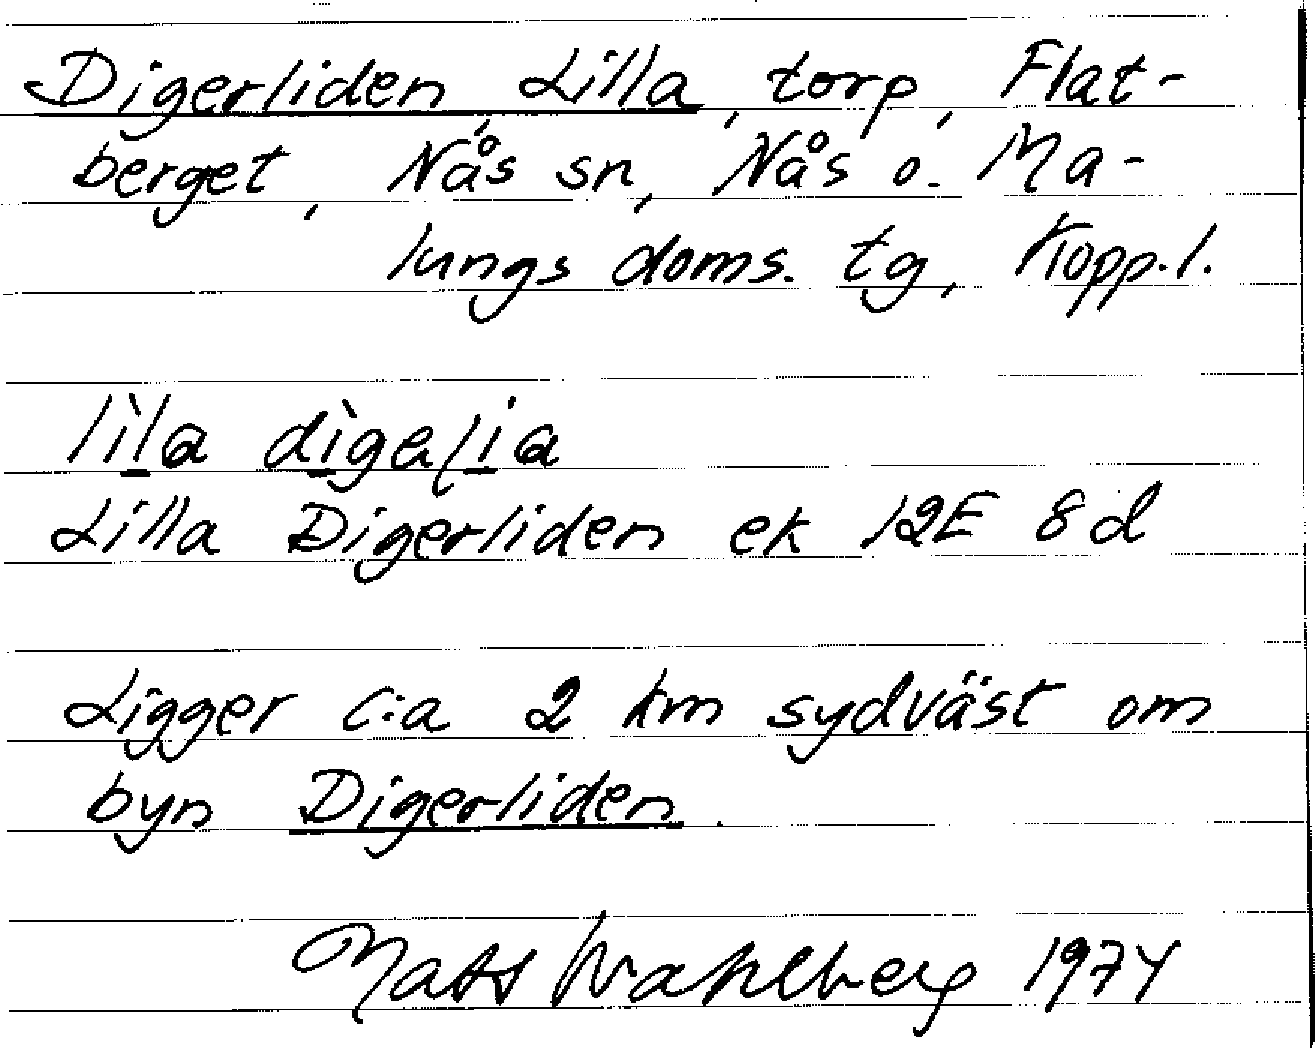 Digerliden, Lilla, torp, Flat-
berget, Nås sn, Nås o. Ma-
lungs doms. tg, Kopp.l.
lìla dìgaɭia
Lilla Digerliden ek 12E 8d
Ligger c:a 2 km sydväst om
byn Digerliden.
Mats Wahlberg 1974